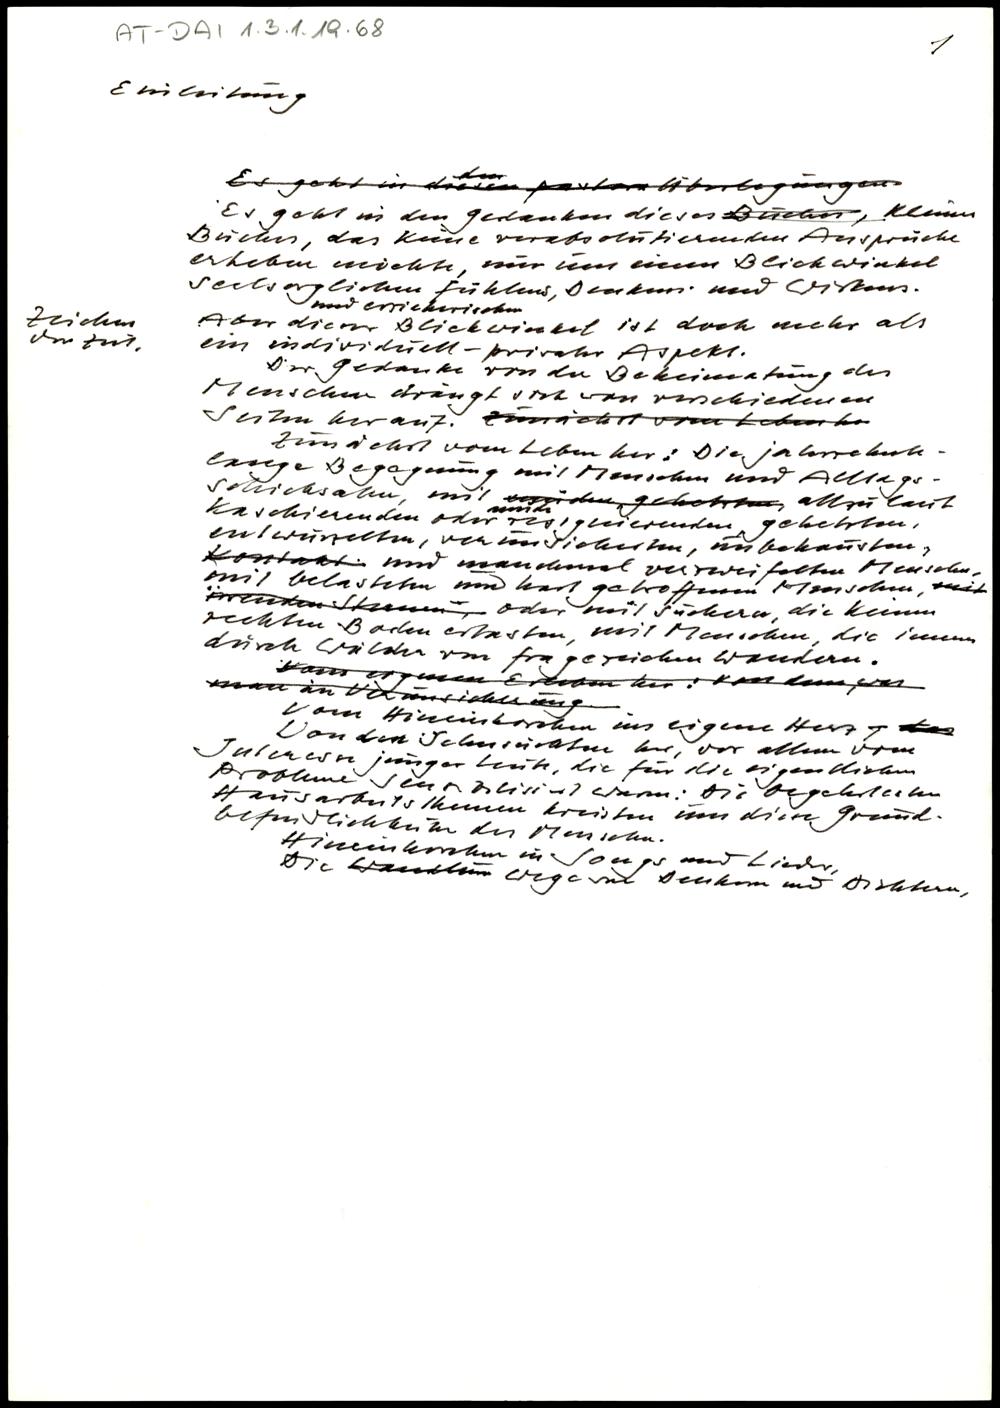 AT-DAI 1.3.1.19.68
1
Einleitung
den
Es geht in diesen pastoralen Überlegungen
Es geht in den Gedanken dieses Buches, kleinen
Buches, das keine verabsolutierenden Ansprüche
erheben möchte, nur um einen Blickwinkel
seelsorglichen Fühlens, Denkens und Wirkens.
und erzieherischen
Zeichen
der Zeit.
Aber dieser Blickwinkel ist doch mehr als
ein individuell-privater Aspekt.
Der Gedanke von der Beheimatung des
Menschen drängt sich von verschiedenen
Seiten herauf. Zunächst vom Leben he
Zunächst vom Leben her: Die jahrzehnte-
lange Begegnung mit Menschen und Alltags-
schicksalen, mit müden, gehetzten, allzu laut
kaschierenden oder müde resignierenden, gehetzten,
entwurzelten, verunsicherten, unbehausten,
Kontakt und manchmal verzweifelten Menschen,
mit belasteten und hart getroffenen Menschen, mit
irrenden Sternen, oder mit Suchern, die keinen
rechten Boden ertasten, mit Menschen, die immer
durch Wälder von Fragezeichen wandern.
Vom eigenen Erleben her: Von dem, was
man an Verunsicherung
Vom Hineinhorchen ins eigene Herz, des
Von den Sehnsüchten her, vor allem vom
Interesse junger Leute, die für die eigentlichen
Probleme sensibilisiert waren: Die begehrtesten
Hausarbeitsthemen kreisten um diese Grund-
befindlichkeiten des Menschen.
Hineinhorchen in Songs und Lieder,
Die Wege von Denkern und Dichtern,